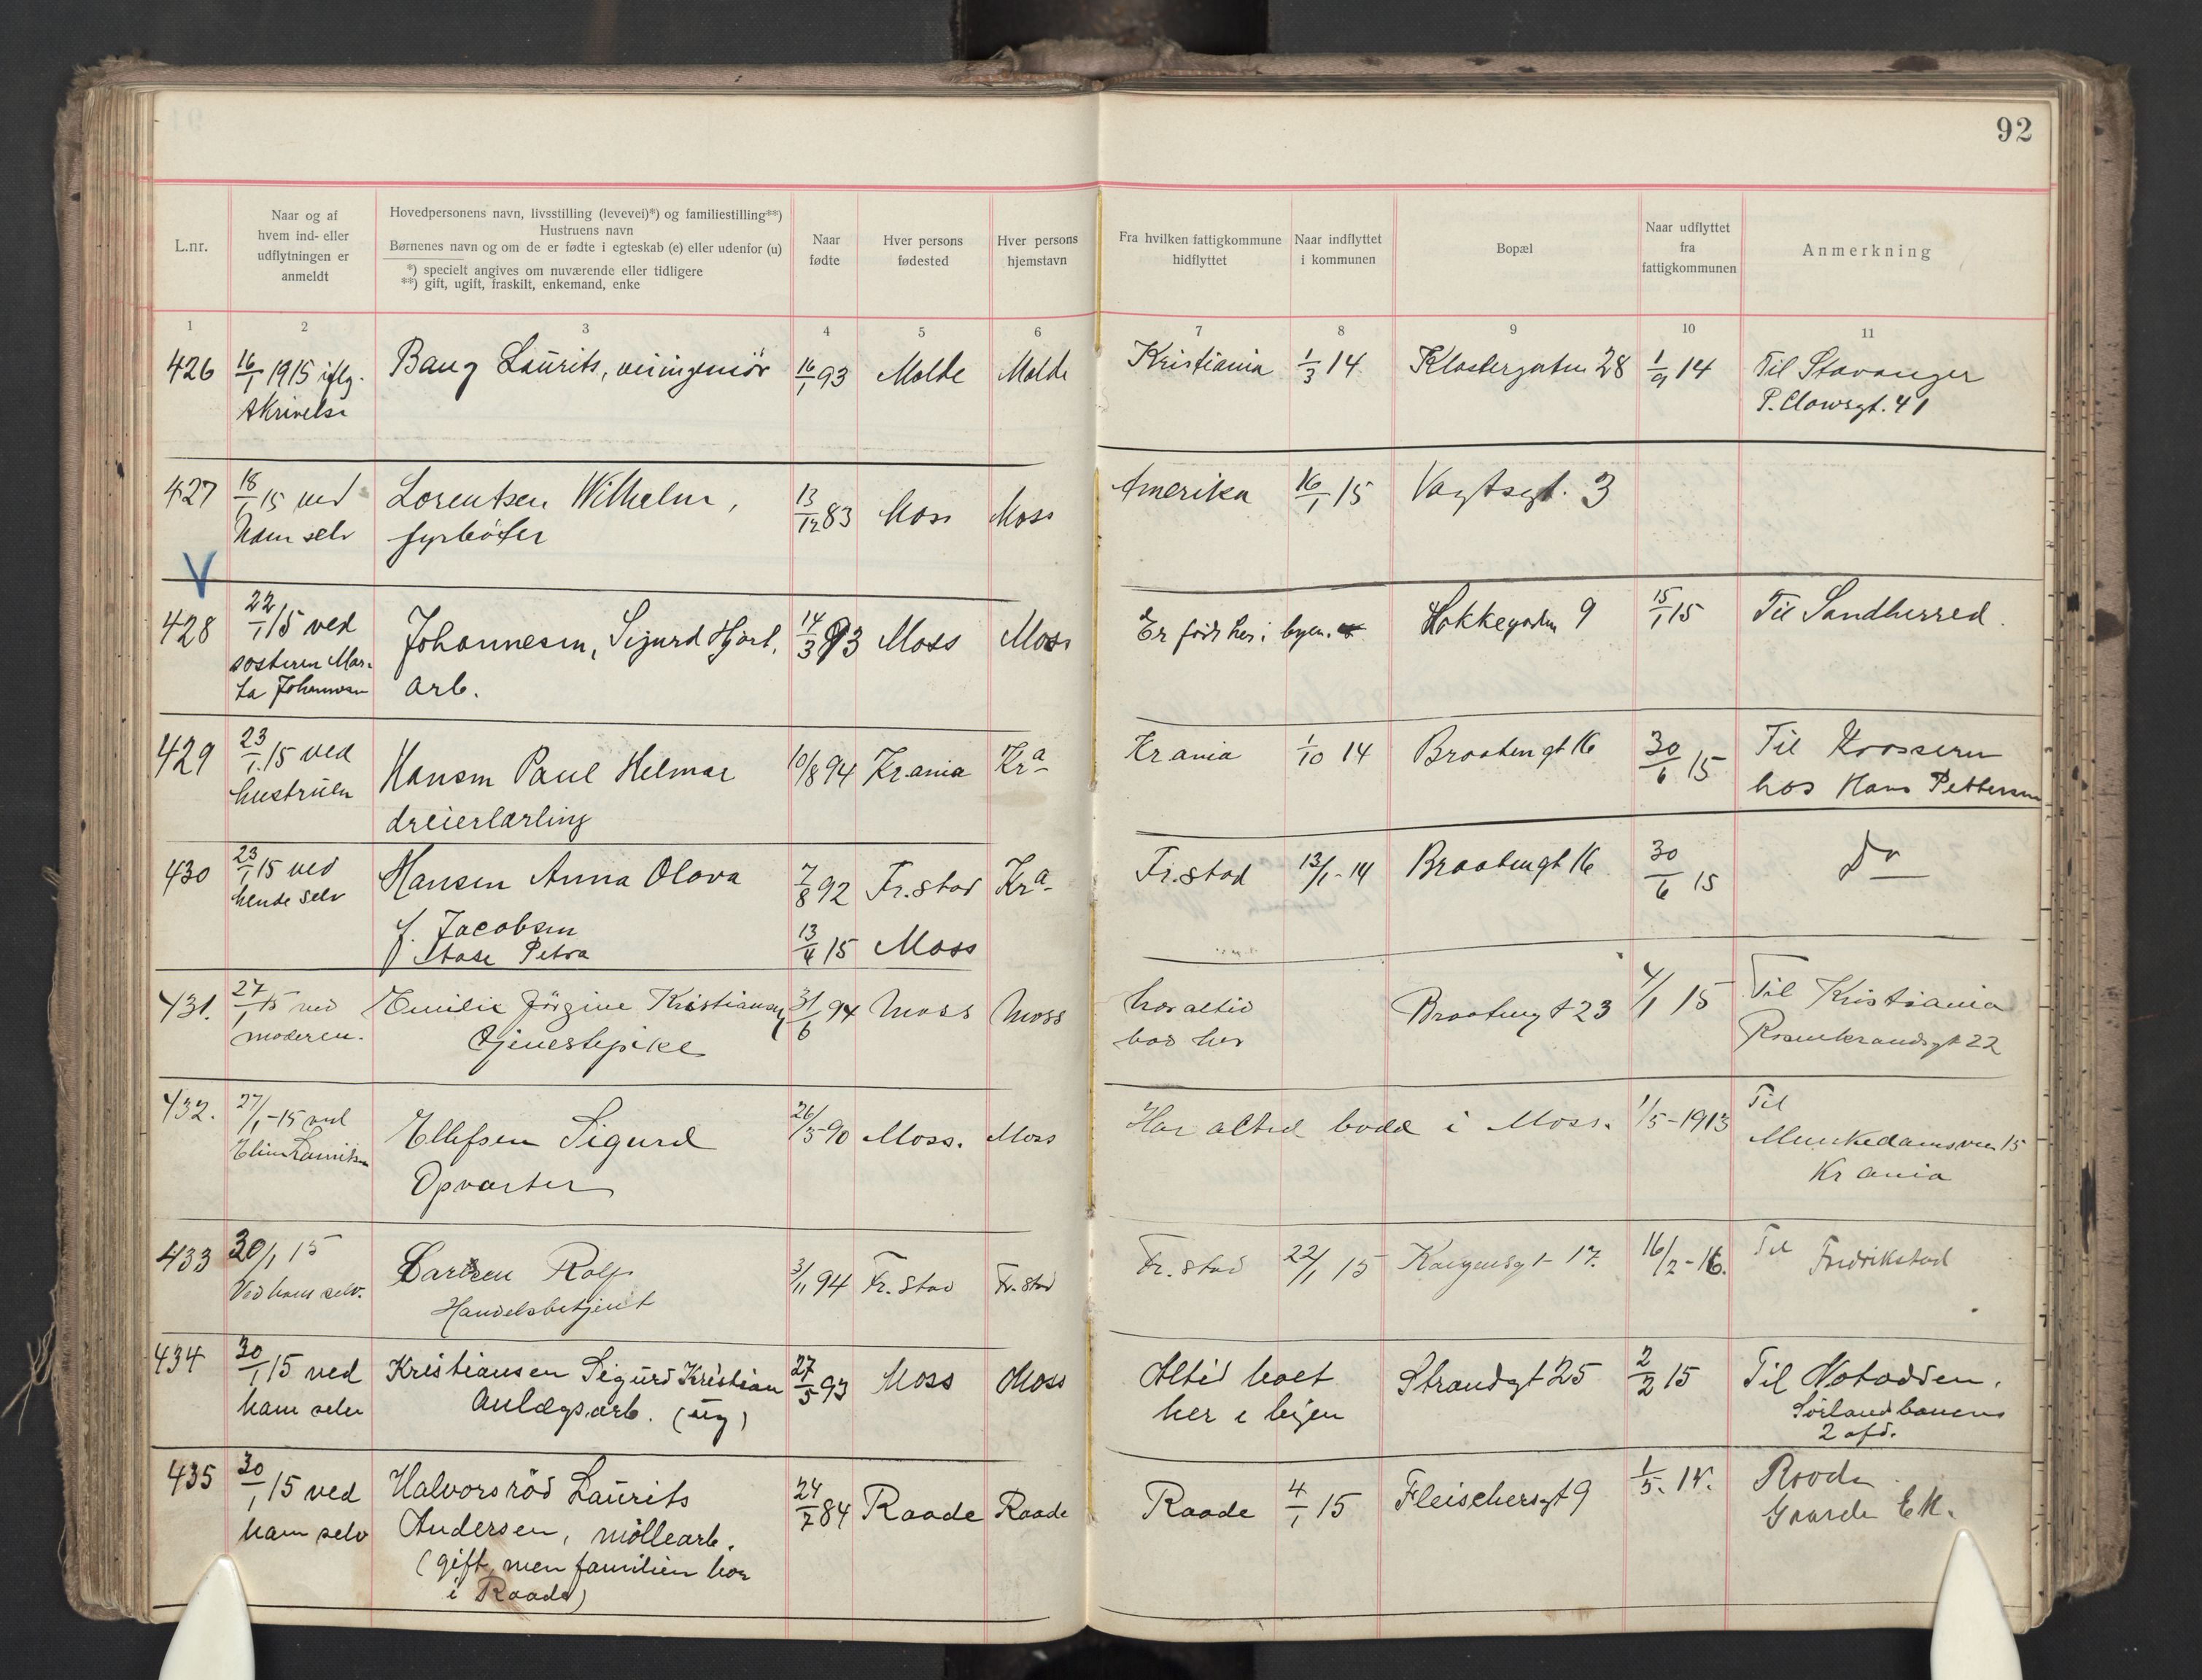 92
L.nr.
Naar og af
hvem ind- eller
udflytningen er
anmeldt
Hovedpersonens navn, livsstilling (levevei)*) og familiestilling**)
Hustruens navn
Børnenes navn og om de er fødte i egteskab (e) eller udenfor (u)
*) specielt angives om nuværende eller tidligere
**) gift, ugift, fraskilt, enkemand, enke
Naar
fødte
Hver persons
fødested
Hver persons
hjemstavn
Fra hvilken fattigkommune
hidflyttet
Naar indflyttet
i kommunen
Bopæl
Naar udflyttet
fra
fattigkommunen
Anmerkning
1 2 3 4 5 6 7 8 9 10 11
426 16/1 1915 iflg. Baug Laurits, 16/1 93 Molde Molde Kristiania 1/3 14 Klostergaten 28 1/9 14 Til Stavanger
skrivelse P. Clowsgt. 41
427 18/1 15 ved Lorentsen Wilhelm, 13/12 83 Moss Moss Amerika 16/1 15 Vogtsgt. 3
ham selv fyrbøter
V
428 22/1 15 ved Johannesen, Sigurd Hjort, 14/3 93 Moss Moss Er født her i byen. Hokkegaten 9 15/1 15 Til Sandherred.
søsteren Mar-
ta Johannesen arb.
429 23/1 15 ved Hansen Paul Helmar 10/8 94 Kr.ania Kra- Kr ania 1/10 14 Braatengt 16 30/6 15 Til Krossern
hustruen dreierlærling hos Hans Pettersen
430 23/1 15 ved Hansen Anna Olava 7/8 92 Fr.stad Kra- Fr.stad 13/1-14 Braatengt 16 30/6 15 Do
hende selv
f. Jacobsen
Aase Petra 13/4 15 Moss
431. 27/1 15 ved Emilie Jörgine Kristiansen 31/6 94 Moss Moss har altid Braatengt 23 4/1 15 Til Kristiania
moderen. Tjenestepike bod her Rosenkrandsgt 22
432. 27/1-15 ved Ellefsen Sigurd 26/5-90 Moss. Moss Har altid bodd i Moss. 1/5-1913 Til
Opvarter Munkedamsveien 15
Kr ania
433 30/1 15 Carlsen Rolf 3/11 94 Fr. stad Fr. stad Fr. stad 22/1 15 Kongensgt- 17. 16/2-16. Til Fredrikstad
Ved ham selv. Handelsbetjent
434 30/1 15 ved Kristiansen Sigurd Kristian 27/5 93 Moss Moss Altid boet Strandgt 25 2/2 15 Til Notodden.
ham selv Anlægsarb. (ug) her i byen Sørlandbanens
2 afd.
435 30/1 15 ved Halvorsrød Laurits 24/7 84 Raade Raade Raade 4/1 15 Fleischersgt 9 1/5. 15. Raade
ham selv Andersen, møllearb.
(gift, men familien bor
i Raade)